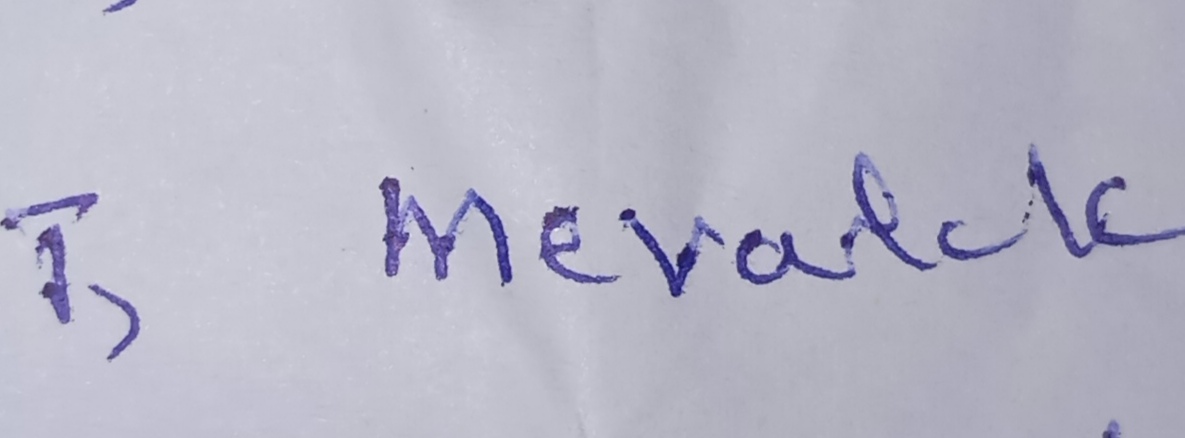 T, Meralck